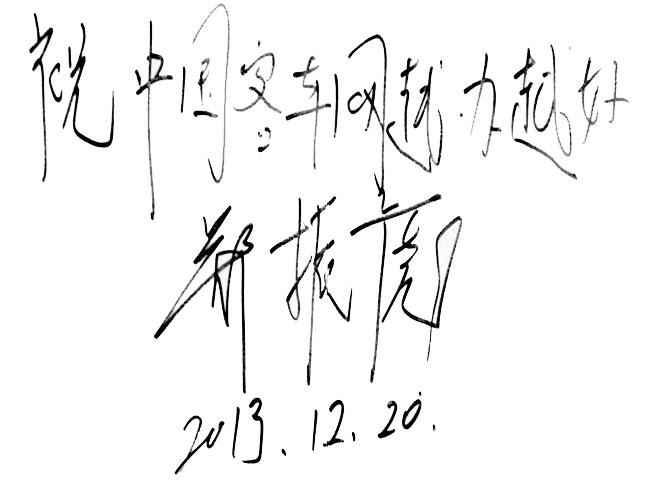 祝中国客车网越办越好
郑振亮
2013.12.20.